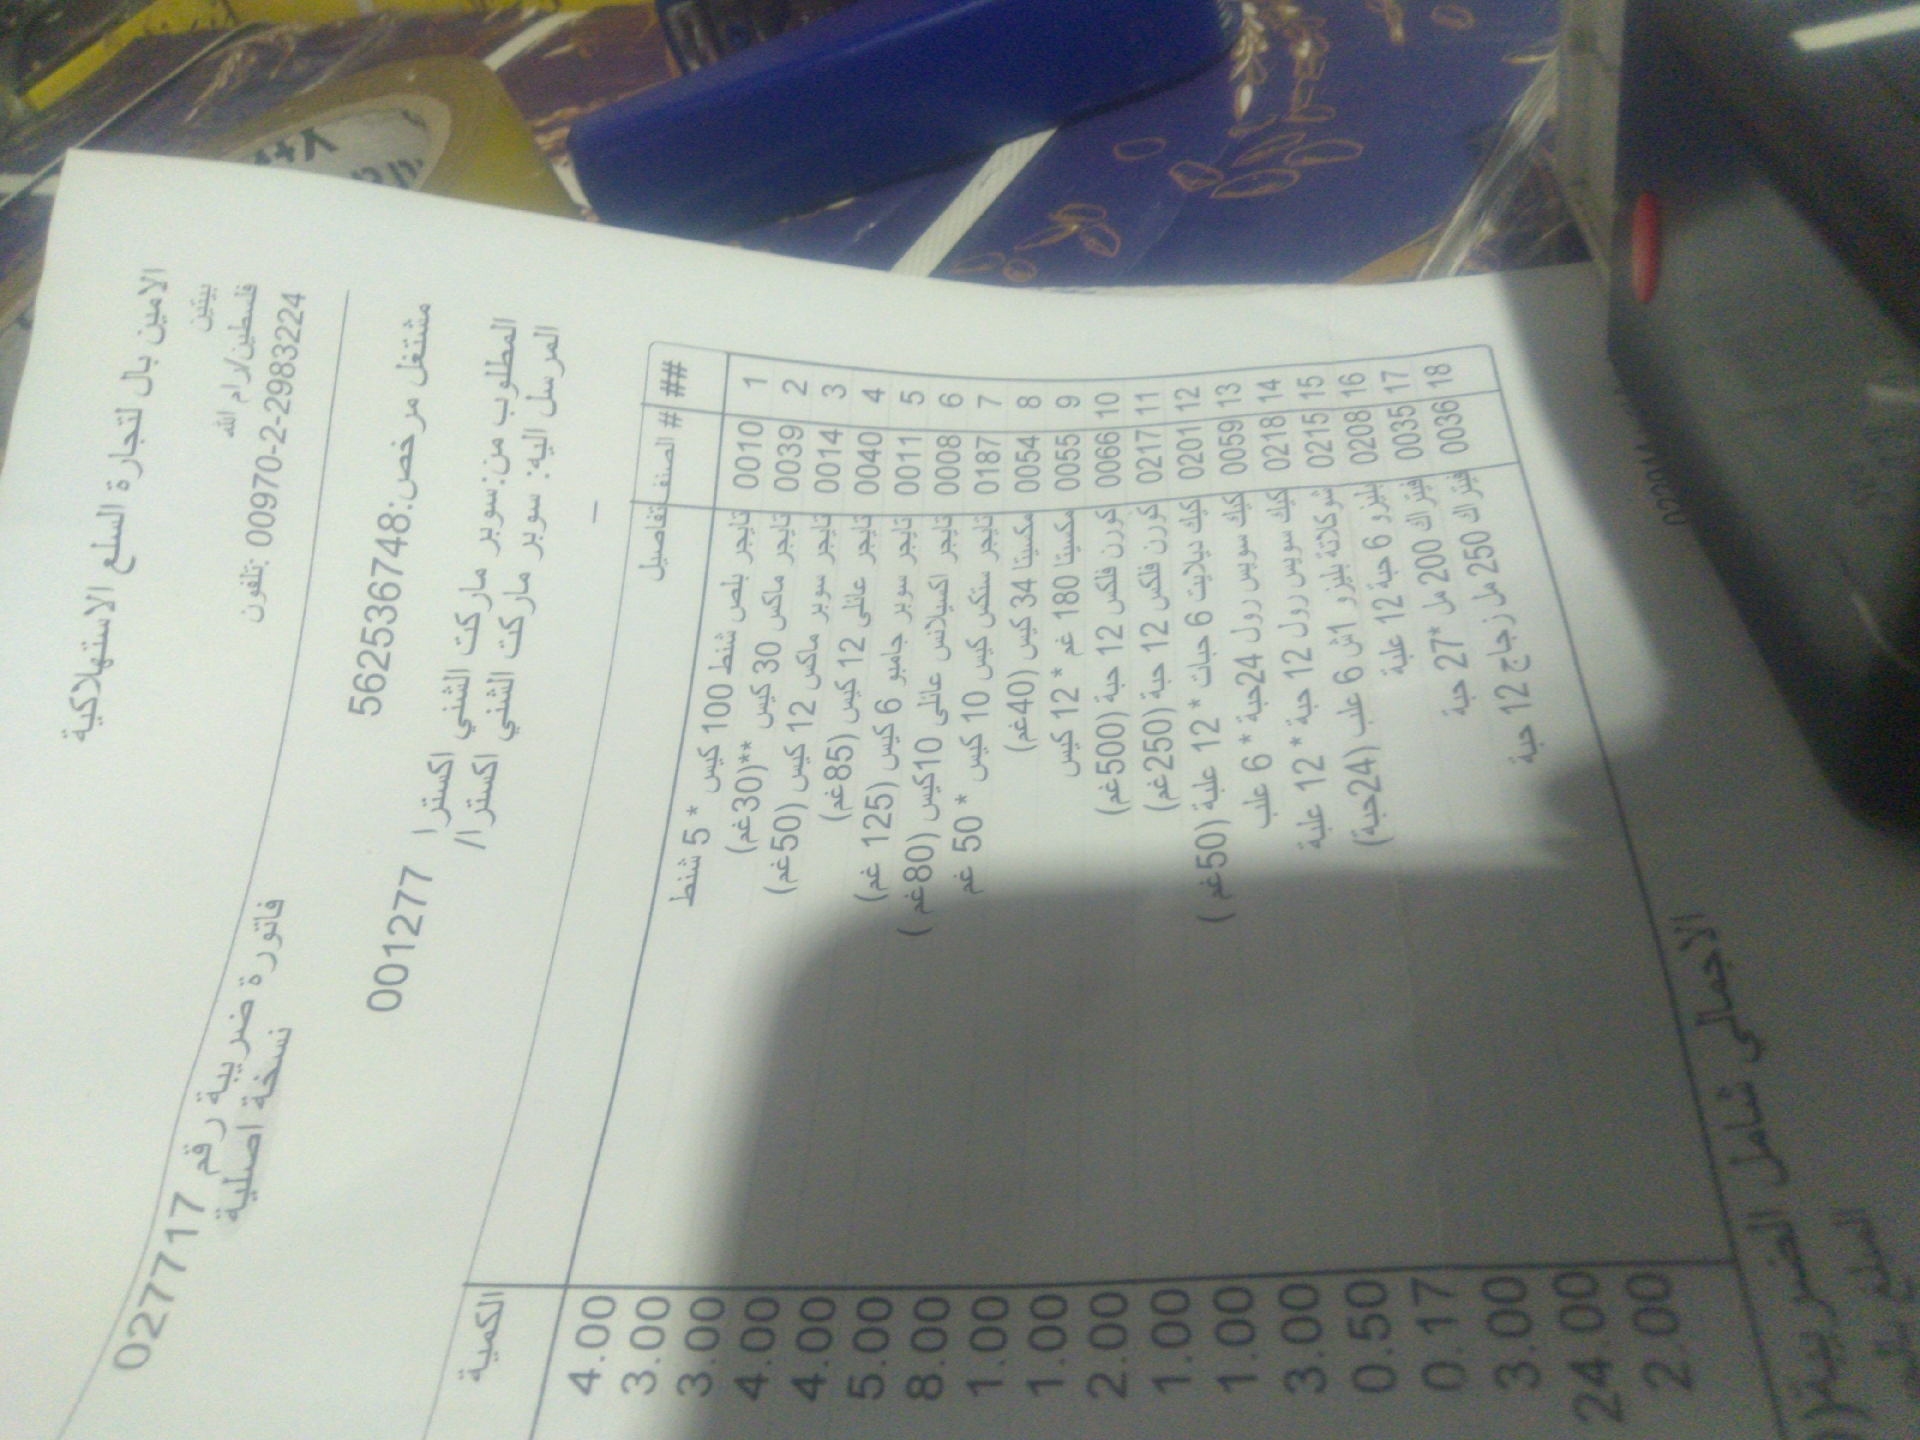 الامين بال لتجارة السلع الاستهلاكية
بيتين
فلسطين/رام الله
تلفون: 00970-2-2983224
فاتورة ضريبة رقم 027717
نسخة اصلية
مشتغل مرخص:562536748
المطلوب من:سوبر ماركت الشني اكسترا 001277
المرسل اليه: سوبر ماركت الشني اكسترا/
## # الصنف تفاصيل الكمية
1 0010 تايجر بلص شنط 100 كيس * 5 شنط 4.00
2 0039 تايجر ماكس 30 كيس **(30غم) 3.00
3 0014 تايجر سوبر ماكس 12 كيس (50غم) 3.00
4 0040 تايجر عائلي 12 كيس (85غم) 4.00
5 0011 تايجر سوبر جامبو 6 كيس (125 غم) 4.00
6 0008 تايجر اكسيلانس عائلي 10كيس (80غم ) 5.00
7 0187 تايجر ستكس كيس 10 كيس * 50 غم 8.00
8 0054 مكسيتا 34 كيس (40غم) 1.00
9 0055 مكسيتا 180 غم * 12 كيس 1.00
10 0066 كورن فلكس 12 حبة (500غم) 2.00
11 0217 كورن فلكس 12 حبة (250غم) 1.00
12 0201 كيك ديلايت 6 حبات * 12 علبة (50غم ) 1.00
13 0059 كيك سويس رول 24حبة * 6 علب 3.00
14 0218 كيك سويس رول 12 حبة * 12 علبة 0.50
15 0215 شوكلاتة بليزو 1ش 6 علب (24حبة) 0.17
16 0208 بليزو 6 حبة 12 علبة 3.00
17 0035 فيتراك 200 مل *27 حبة 24.00
18 0036 فيتراك 250 مل زجاج 12 حبة 2.00
الاجمالي شامل الضريبة